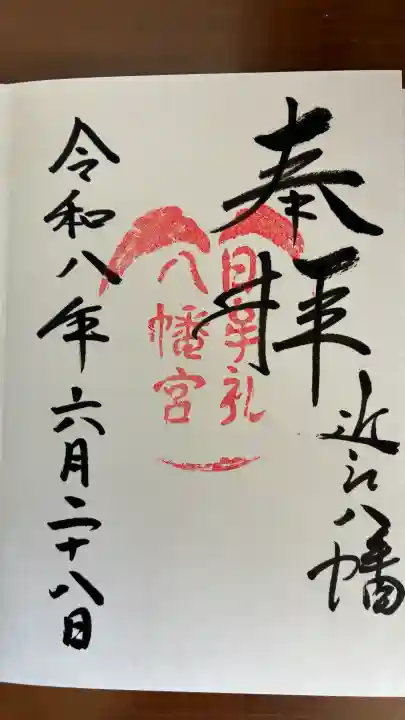 奉拝
近江八幡
日牟礼
八幡宮
令和八年六月二十八日